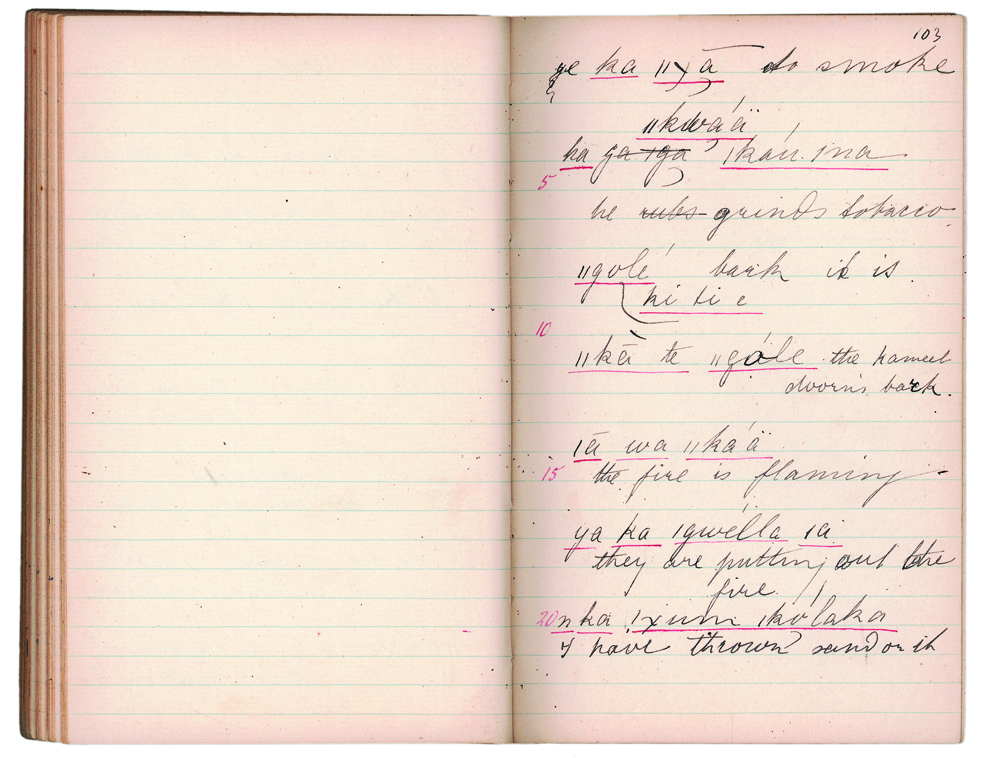 103
ye ka ǁχā to smoke
ǁkwáä
ka ǀkáu ǃna
5
he rubs grinds tobacco
ǁgolé bark it is.
ki ti e
10
ǁkā te ǁgóle the kameel
doorn's bark.
ǀā wa ǁkáä
15 the fire is flaming
ya ka ǀgwélla ǀā
they are putting out the
fire.
20 n ka ǃχum ǀkólaka
I have thrown sand on it